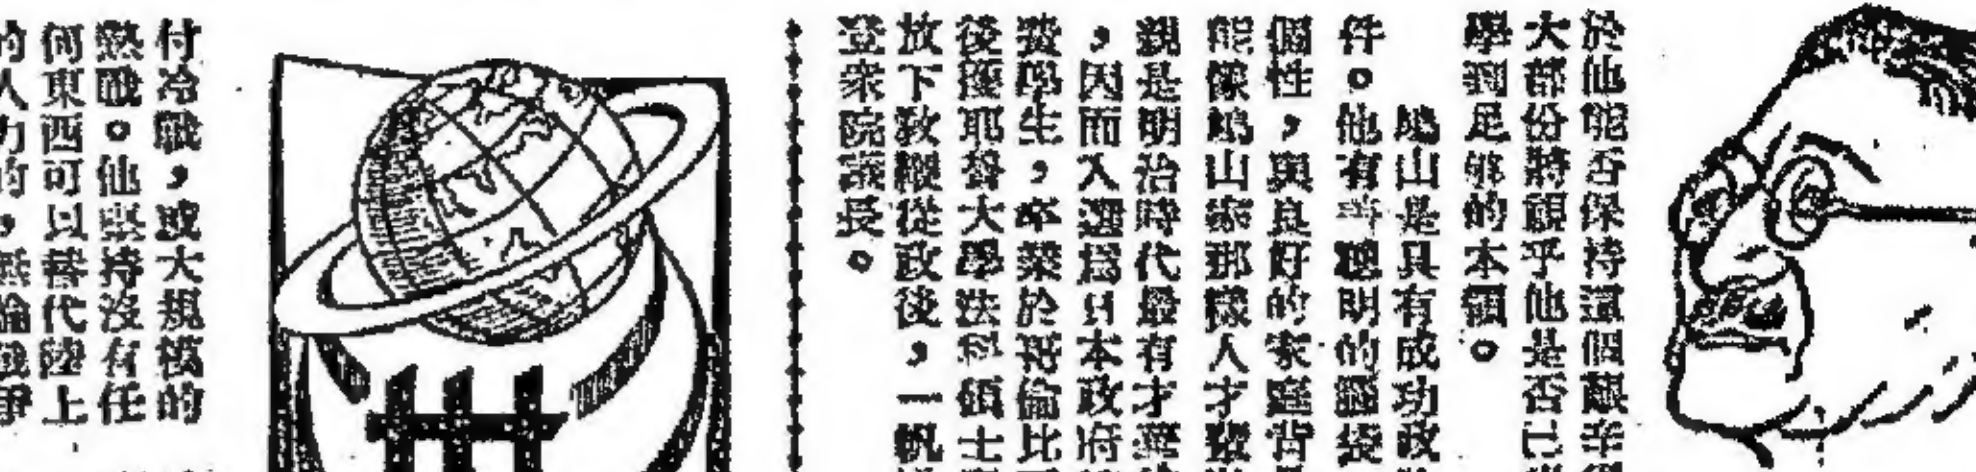 於他能否保持這個艱辛得
大部份將顧乎他是否已當
學到足够的本領。
鳩山是具有成功政
件。他有著聰明的腦袋
個性，與良好的家庭背
能像鳩山家那樣人才輩
親是明治時代最有才華
，因而入選爲日本政府
獎學生，卒業於哥倫比
後獲耶魯大學法科碩士
放下教鞭從政後，一帆
登衆院議長。
付冷戰，或大規模的
熱戰。他堅持沒有任
何東西可以替代陸上
的人力的，無論戰爭